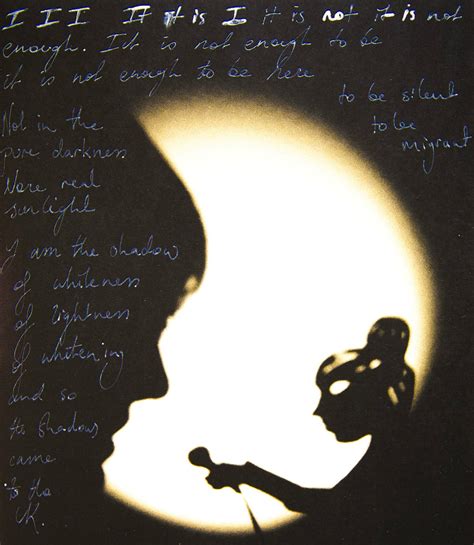 I I I If it is I it is not it is not
enough. It is not enough to be
it is not enough to be here
to be silent
to be
migrant
Not in the
pure darkness
Nore real
sunlight
I am the shadow
of whiteness
of lightness
of whitening
and so
the shadows
came
to the
UK.